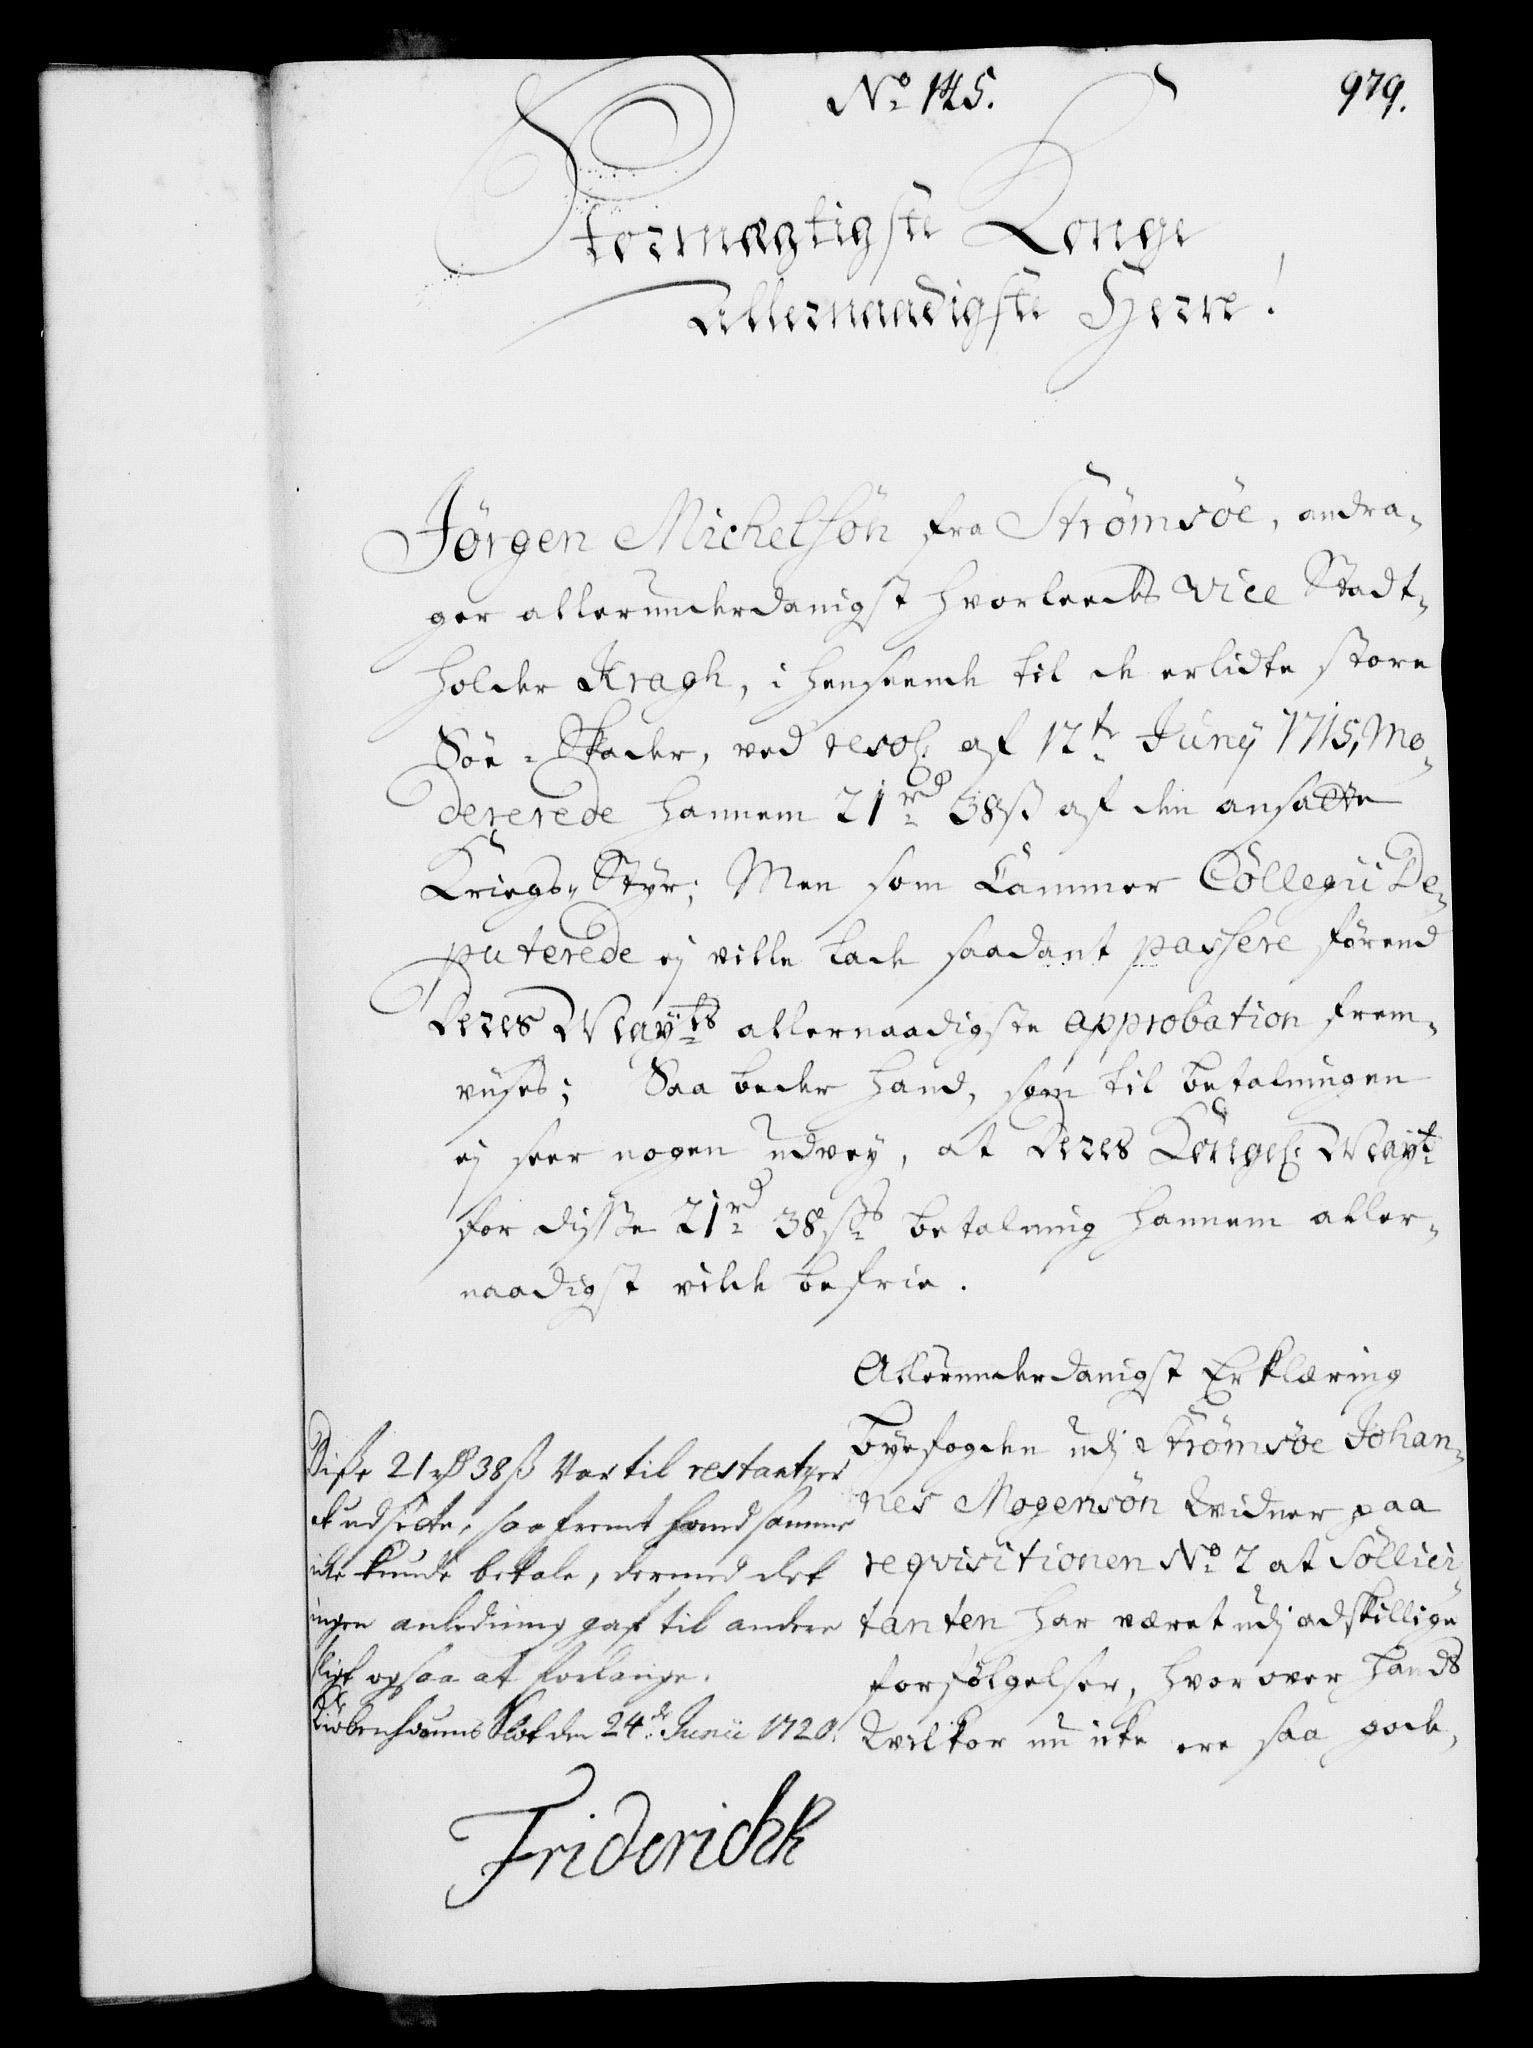 No 145.
979.
Stormægtigste Konge
Allernaadigste Herre!
Jörgen Michelsön fra Strömsöe, andra-
ger allerunderdanigst hvorledes Vice Stadt-
holder Kragh, i henseende til de erlidte store
Söe-Skader, ved resol: af 12te Junÿ 1715, Mo-
dererede hannem 21rd 38ß af den ansatte
Kriegs-Styr; Men som Cammer Collegii De-
puterede ej ville lade saadant passere förend
Deres Mayts allernaadigste approbation frem-
viises; Saa beder hand, som til betalningen
ej seer nogen udvey, at Deres Kongel: Mayt
for disse 21rd 38ßs betalning hannem aller-
naadigst vilde befrie.
Allerunderdanigst Erklæring
byefogden udj Strömsöe Johan-
nes Mogensön Kvidner paa
reqvisitionen No 2 at Sollici-
tanten har været udj adskillige
forfölgelser, hvorover hands
Kvilkor nu icke ere saa gode,
Diße 21rd 38ß Var til restantzer
at udsætte, saafremt hand samme
icke kunde betale, dermed det
ingen anledning gaf til andre
sligt ogsaa at forlange.
Kiöbenhavns Slot den 24de Junii 1720.
Friderich R